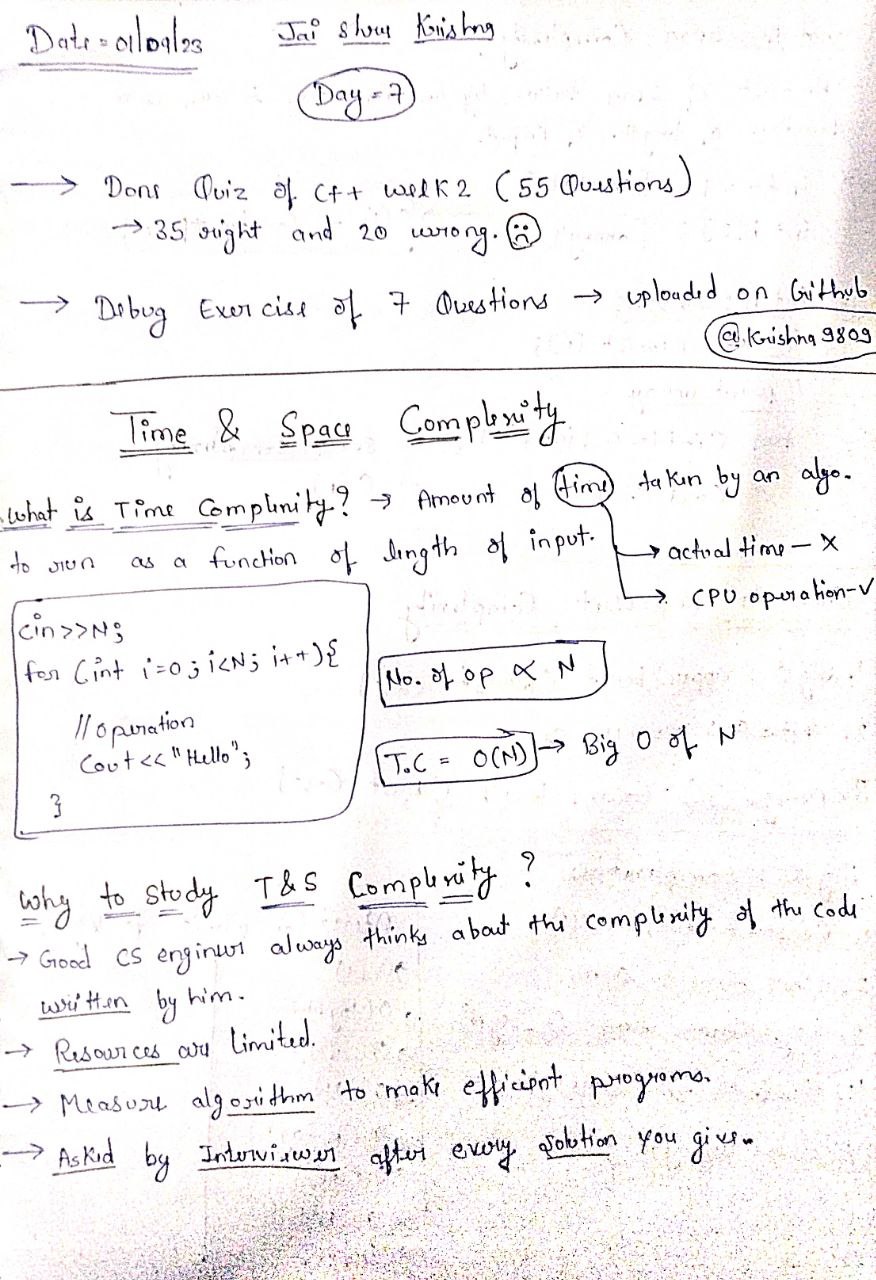 Date = 01/09/23 Jai shree Krishna
Day = 7
→ Done Quiz of C++ week 2 (55 Questions)
→ 35 right and 20 wrong. ☹
→ Debug Exercise of 7 Questions → uploaded on Github
@Krishna9809
Time & Space Complexity
What is Time Complexity? → Amount of time taken by an algo.
to run as a function of length of input.
→ actual time - X
→ CPU operation - ✓
cin>>N;
for (int i=0; i<N; i++){
//operation
Cout<<"Hello";
}
No. of op ∝ N
T.C = O(N) → Big O of N
Why to study T&S Complexity?
→ Good CS engineer always thinks about the complexity of the code
written by him.
→ Resources are limited.
→ Measure algorithm to make efficient programs.
→ Asked by Interviewer after every solution you give.